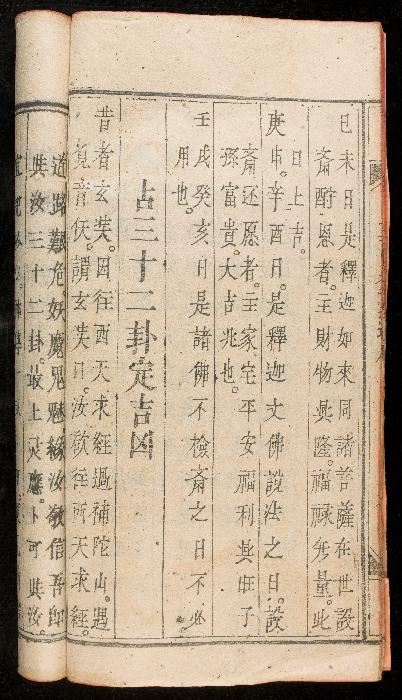 己未日是釋迦如來同諸菩薩在世設
齋酧恩者。主財物興隆。福祿無量。此
日上吉。
庚申。辛酉日。是釋迦文佛說法之日。設
齋还愿者。主家宅平安福利其旺子
孫富貴。大吉兆也。
壬戌癸亥日是諸佛不檢齋之日不必
用也。
占三十二卦定吉凶
昔者玄奘。因往西天求經過補陀山。遇
覍音伏。謂玄奘曰。汝欲往西天求經。
道路艱危妖魔鬼魅緣汝敬信吾即
與汝三十二卦最上灵應。卜可與汝。